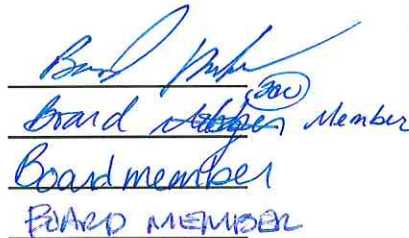 Board
Board Member
Boardmember
BOARD MEMBER